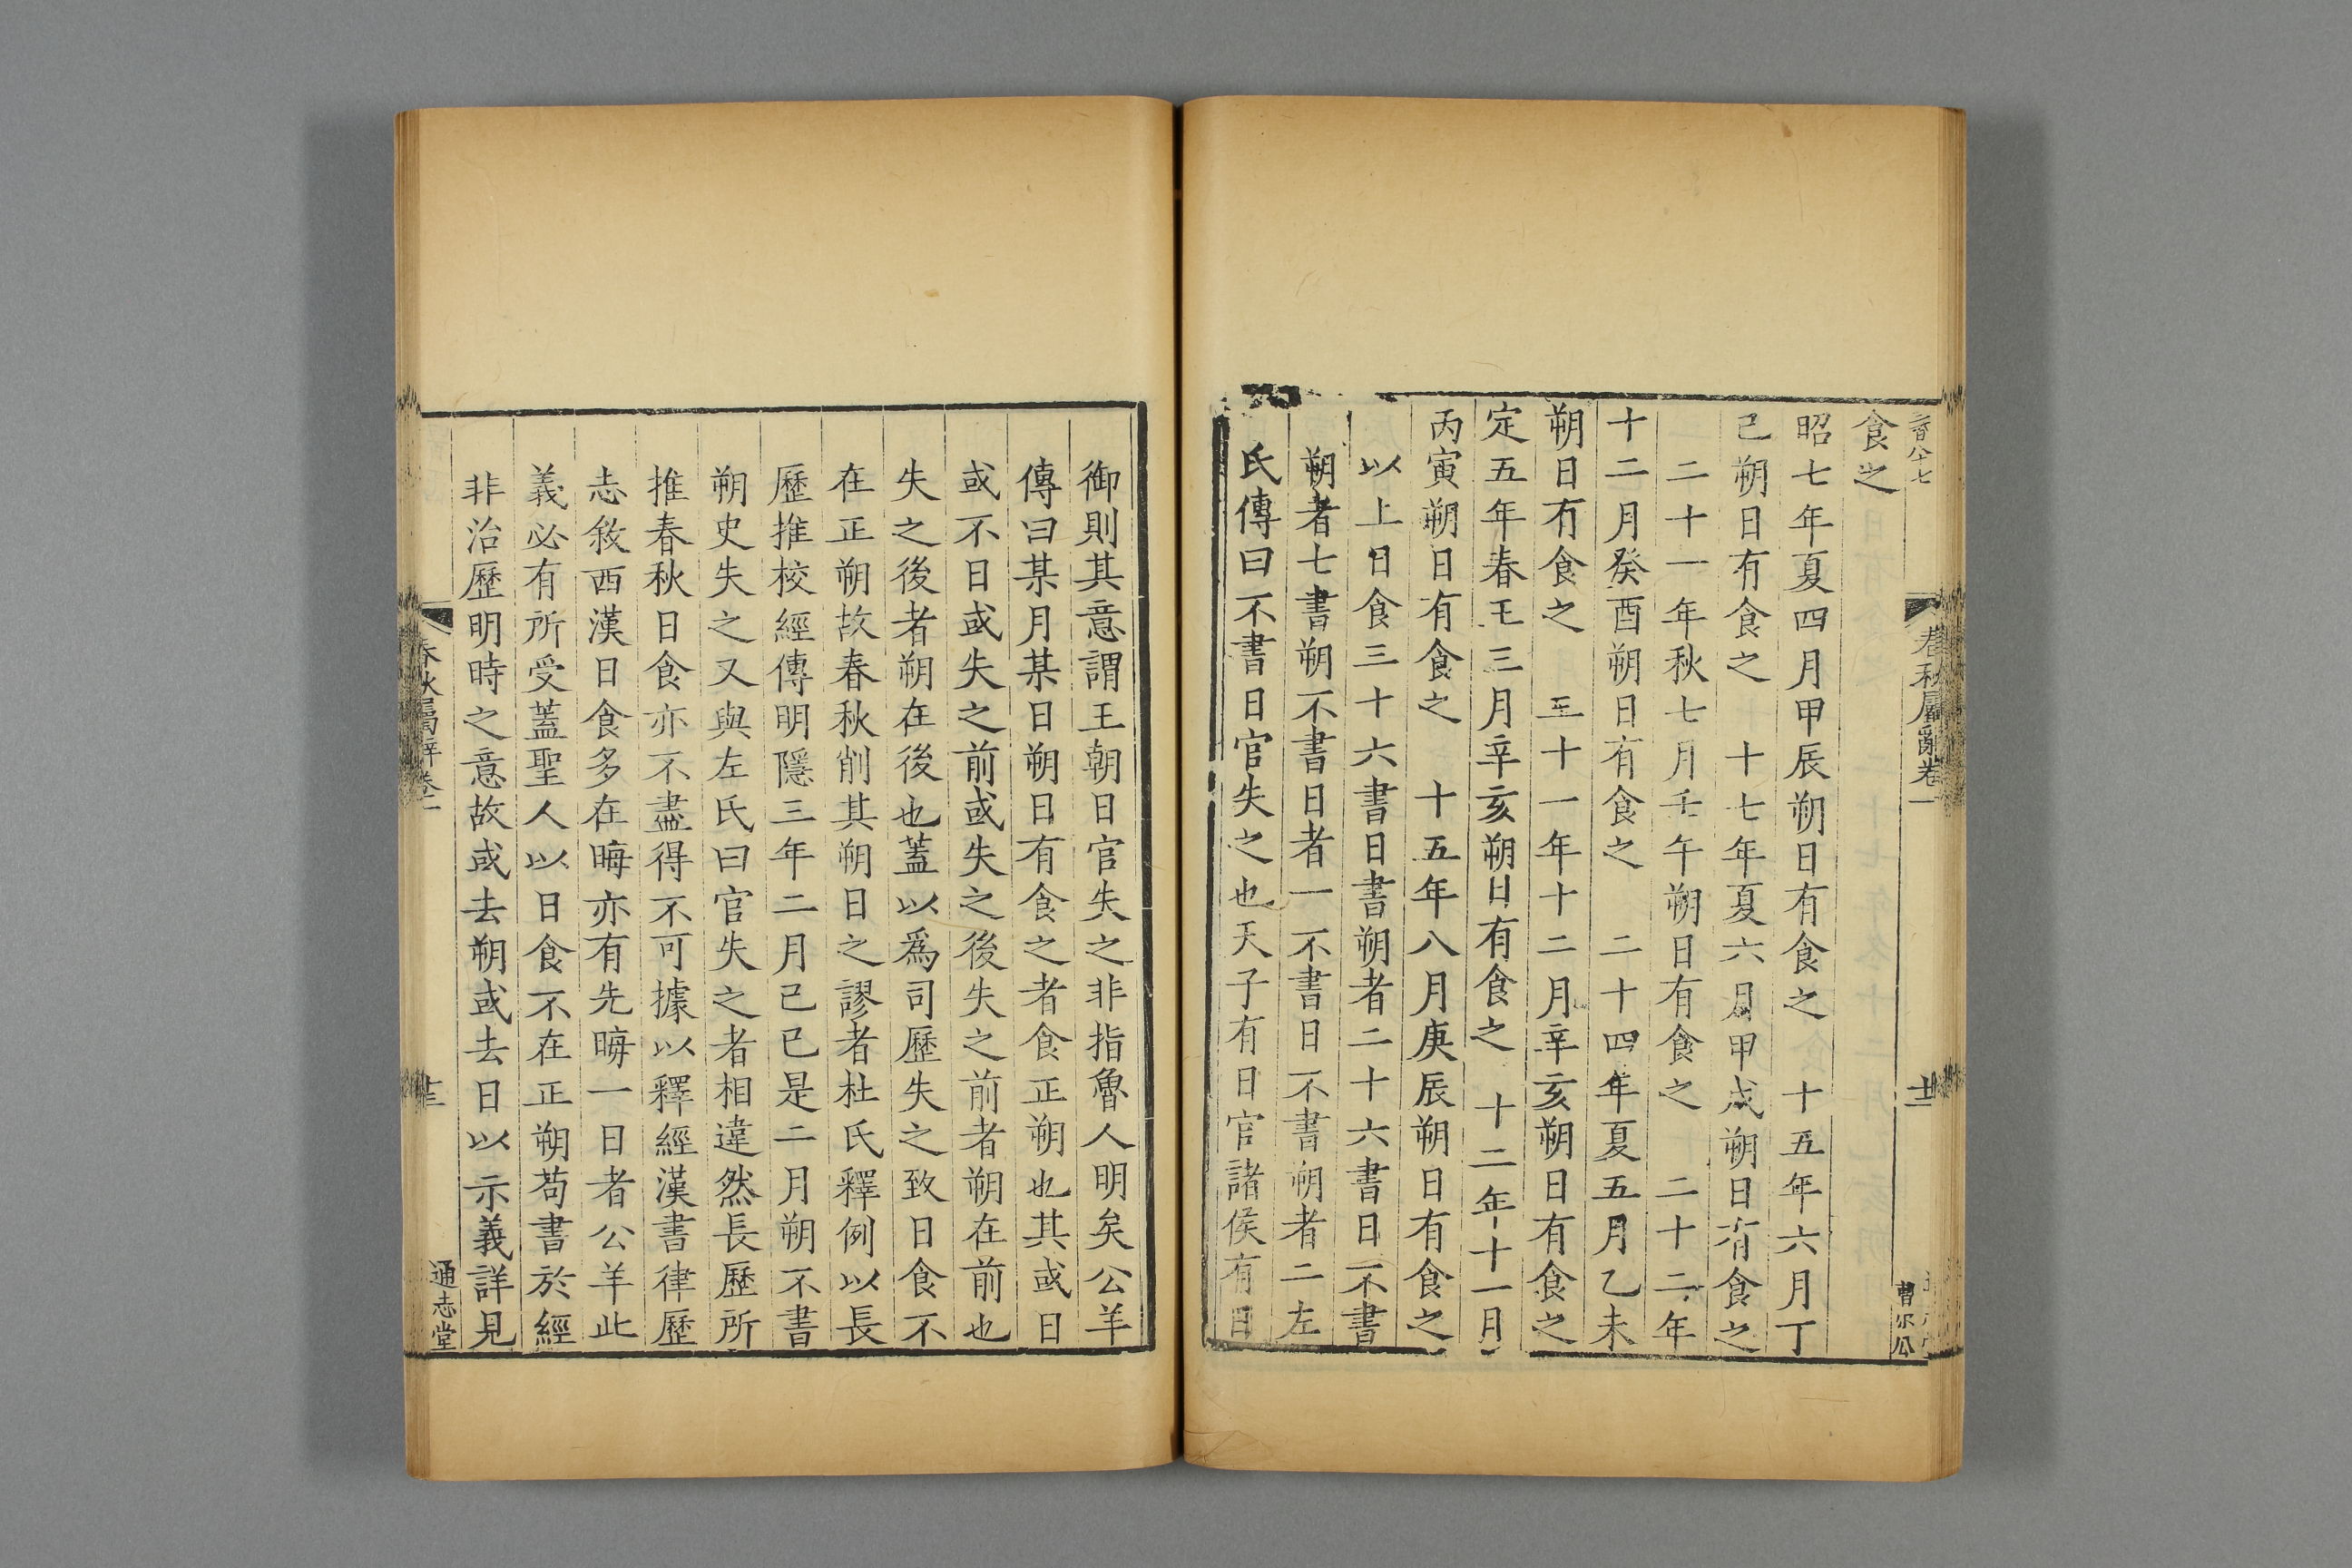 春秋屬辭卷一
食之
昭七年夏四月甲辰朔日有食之　十五年六月丁
巳朔日有食之　十七年夏六月甲戌朔日有食之
二十一年秋七月壬午朔日有食之　二十二年
十二月癸酉朔日有食之　二十四年夏五月乙未
朔日有食之　三十一年十二月辛亥朔日有食之
定五年春王三月辛亥朔日有食之　十二年十一月
丙寅朔日有食之　十五年八月庚辰朔日有食之
以上日食三十六書日書朔者二十六書日不書
朔者七書朔不書日者一不書日不書朔者二左
氏傳曰不書日官失之也天子有日官諸侯有日
御則其意謂王朝日官失之非指魯人明矣公羊
傳曰某月某日朔日有食之者食正朔也其或日
或不日或失之前或失之後失之前者朔在前也
失之後者朔在後也蓋以爲司歷失之致日食不
在正朔故春秋削其朔日之謬者杜氏釋例以長
歷推校經傳明隱三年二月己巳是二月朔不書
朔史失之又與左氏曰官失之者相違然長歷所
推春秋日食亦不盡得不可據以釋經漢書律歷
志敘西漢日食多在晦亦有先晦一日者公羊此
義必有所受蓋聖人以日食不在正朔苟書於經
非治歷明時之意故或去朔或去日以示義詳見
春秋屬辭卷一
通志堂